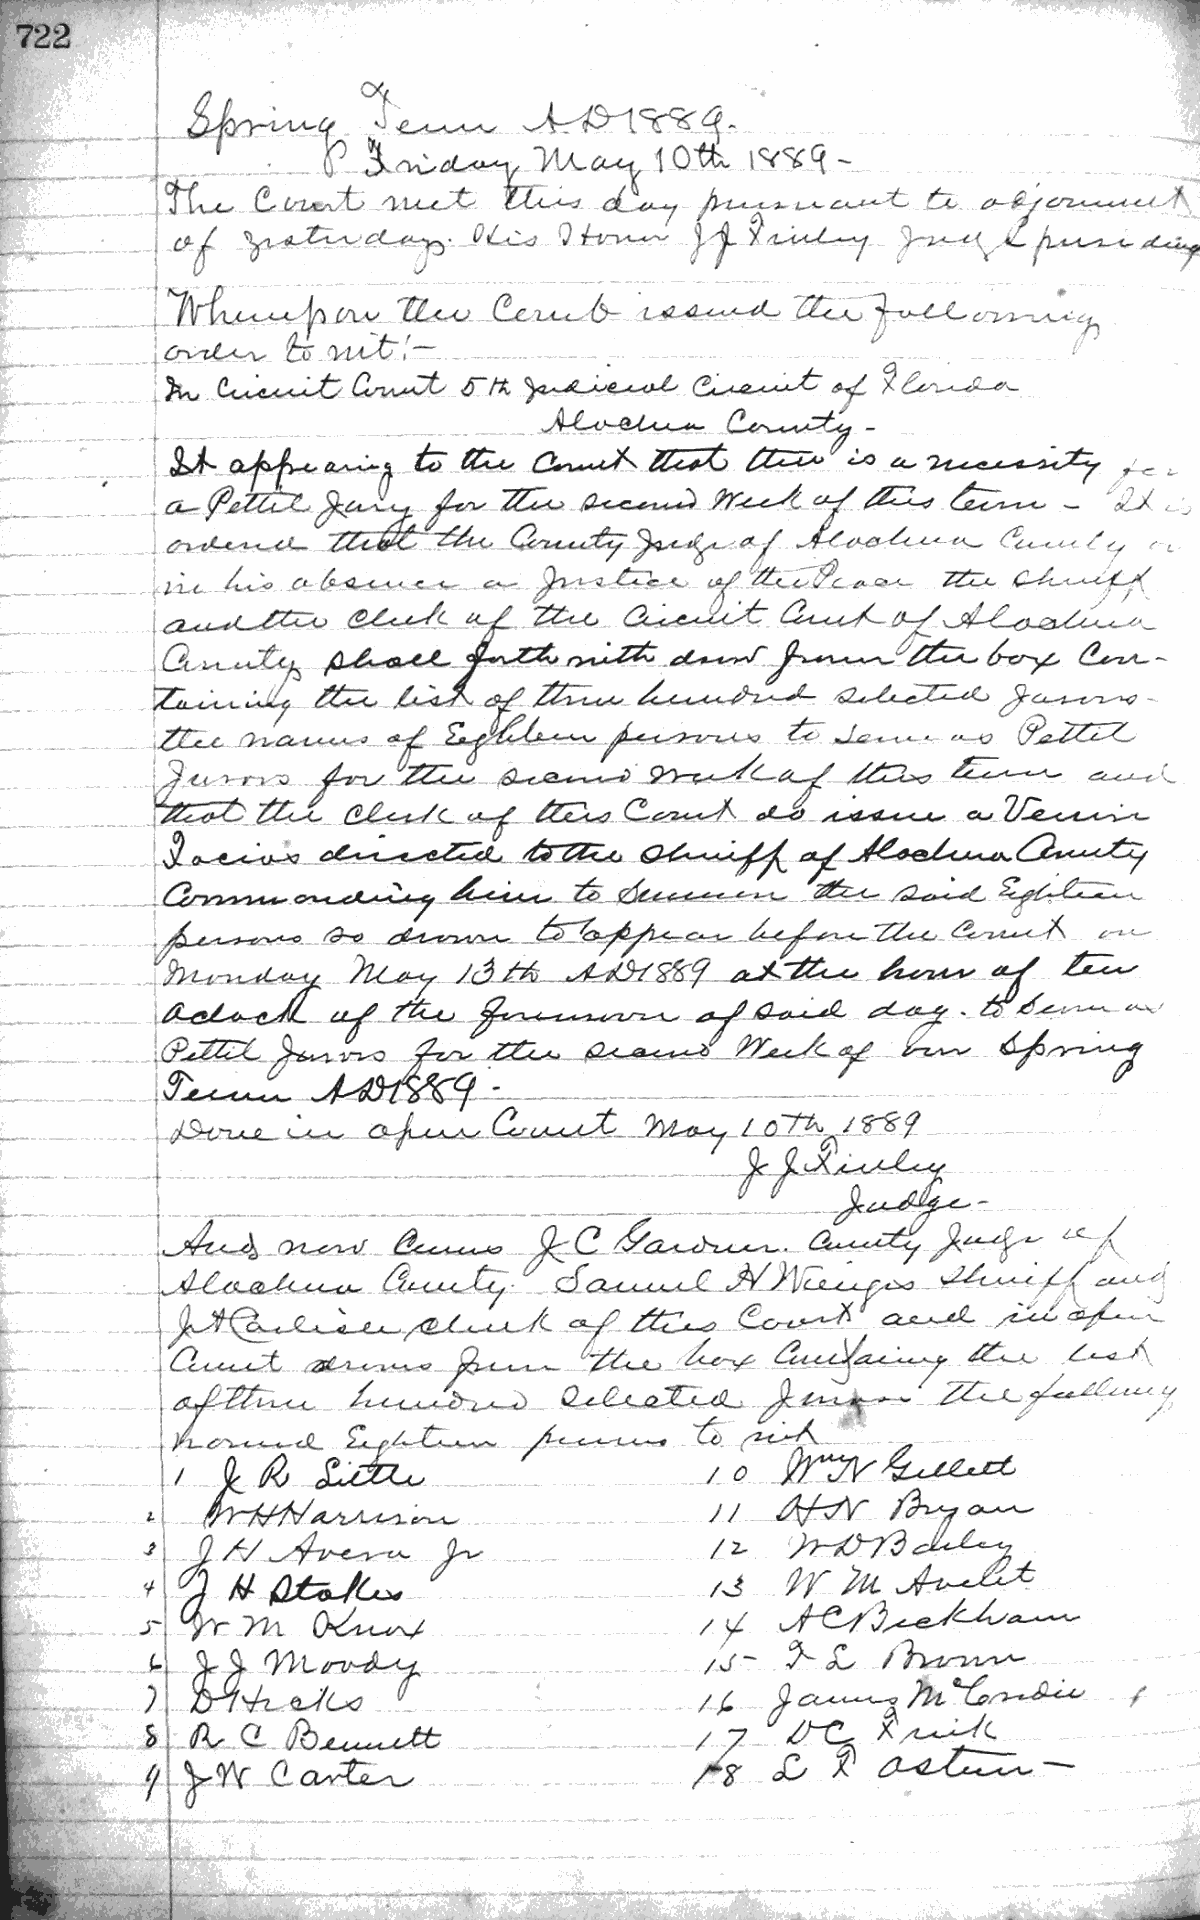 722
Spring Term AD 1889.
Friday May 10th 1889 -
The Court met this day pursuant to adjournment
of yesterday. His Honor J J Finley Judge presiding
Whereupon the Court issued the following
order to wit:-
In Circuit Court 5th Judicial Circuit of Florida
Alachua County -
It appearing to the Court that there is a necessity for
a Pettit Jury for the second Week of this term - It is
ordered that the County Judge of Alachua County or
in his absence a Justice of the Peace the Sheriff
and the Clerk of the Circuit Court of Alachua
County shall forthwith draw from the box Con-
taining the list of three hundred selected Jurors -
the names of Eighteen persons to serve as Pettit
Jurors for the second week of this term and
that the Clerk of this Court do issue a Venire
Facias directed to the Sheriff of Alachua County
Commanding him to Summon the said Eighteen
persons so drawn to appear before the Court on
Monday May 13th AD 1889 at the hour of ten
Oclock of the forenoon of said day. to Serve as
Pettit Jurors for the second Week of our Spring
Term AD 1889 -
Done in open Court May 10th 1889
J J Finley
Judge -
And now Comes J C Gardner. County Judge of
Alachua County. Samuel H Wienges Sheriff and
J A Carlisle Clerk of this Court and in open
Court draws from the box Containing the list
of three hundred Selected Jurors the following
named Eighteen persons to wit
1 J R Little
2 W H Harrison
3 J H Avera Jr
4 J H Stokes
5 W M Knox
6 J J Moody
7 D Hicks
8 R C Bennett
9 J W Carter
10 Wm N Gillett
11 H N Bryan
12 W D Bailey
13 W M Avelet
14 A C Beckham
15 F L Brown
16 James McCredie
17 D C Frick
18 L F Osteen -